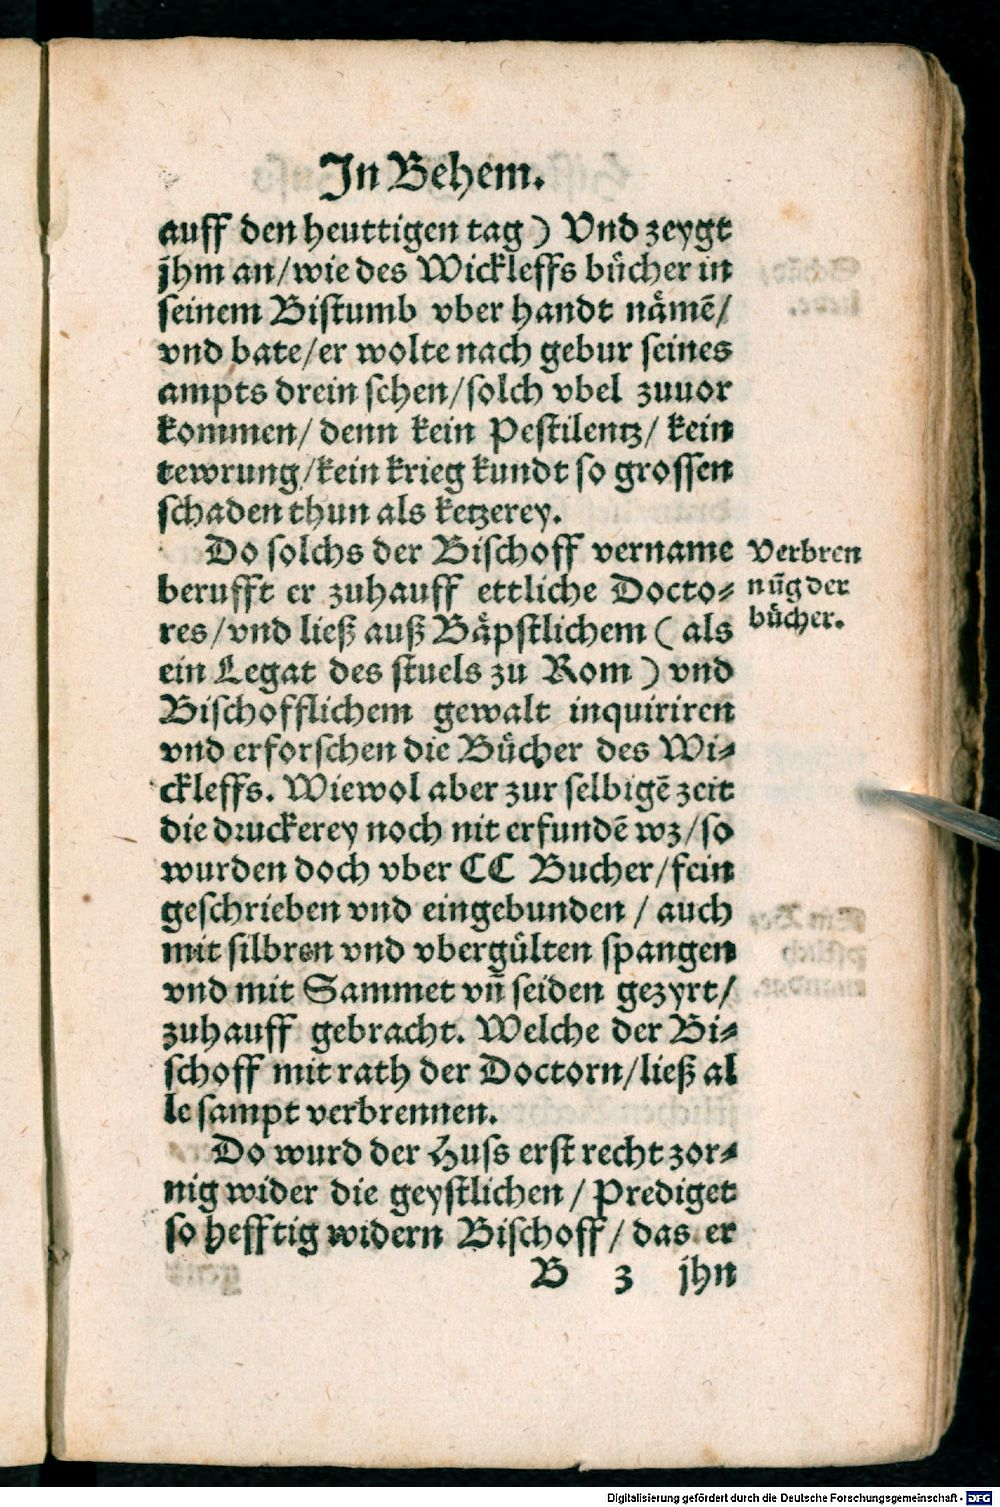 In Behem.
auff den heuttigen tag) Vnd zeygt
jhm an/wie des Wickleffs bücher in
seinem Bistumb vber handt nämē/
vnd bate/er wolte nach gebur seines
ampts drein schen/solch vbel zuuor
kommen/ denn kein Pestilentz/ kein
tewrung/kein krieg kundt so grossen
schaden thun als ketzerey.
Do solchs der Bischoff vername
berufft er zuhauff ettliche Docto⸗
res/vnd ließ auß Bäpstlichem (als
ein Legat des stuels zu Rom) vnd
Bischofflichem gewalt inquiriren
vnd erforschen die Bücher des Wi⸗
ckleffs. Wiewol aber zur selbigē zeit
die druckerey noch nit erfundē wz/so
wurden doch vber CC Bucher/fein
geschrieben vnd eingebunden / auch
mit silbren vnd vbergülten spangen
vnd mit Sammet vñ seiden gezyrt/
zuhauff gebracht. Welche der Bi⸗
schoff mit rath der Doctorn/ließ al
le sampt verbrennen.
Do wurd der Huss erst recht zor⸗
nig wider die geystlichen / Prediget
so hefftig widern Bischoff/ das er
B 3 jhn
Verbren
nūg der
bücher.
Digitalisierung gefördert durch die Deutsche Forschungsgemeinschaft - DFG